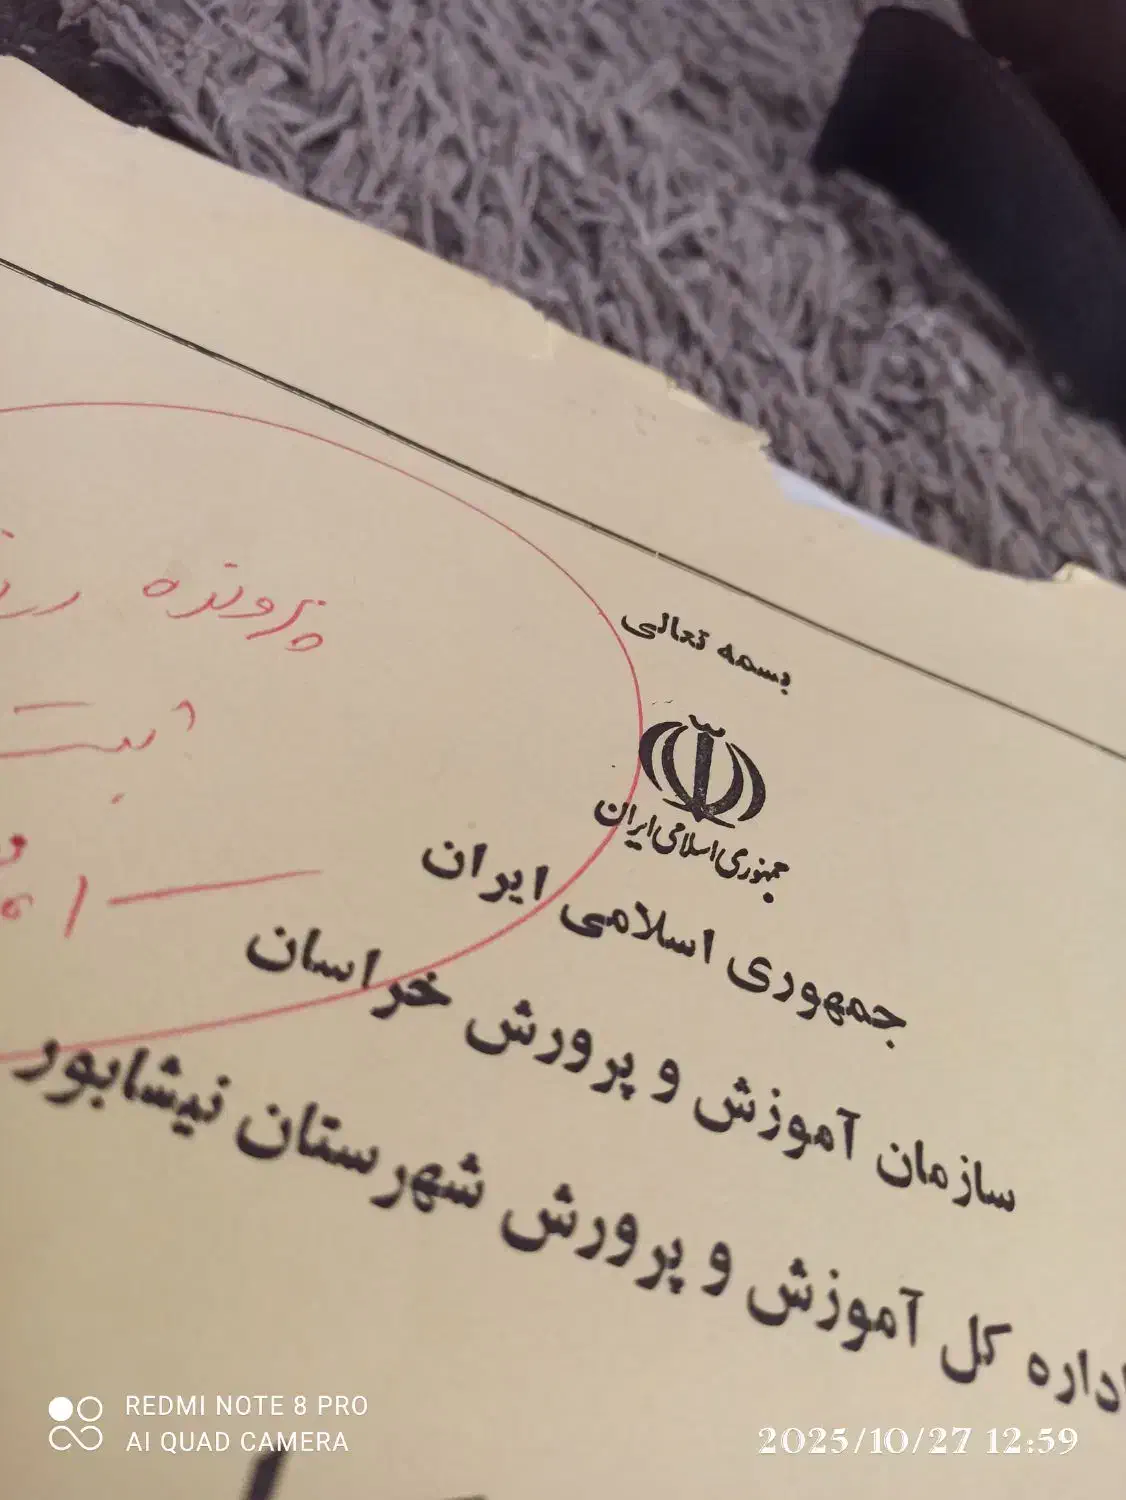 بسمه تعالی
جمهوری اسلامی ایران
جمهوری اسلامی ایران
سازمان آموزش و پرورش خراسان
اداره کل آموزش و پرورش شهرستان نیشابور
پرونده
REDMI NOTE 8 PRO
AI QUAD CAMERA
2025/10/27 12:59